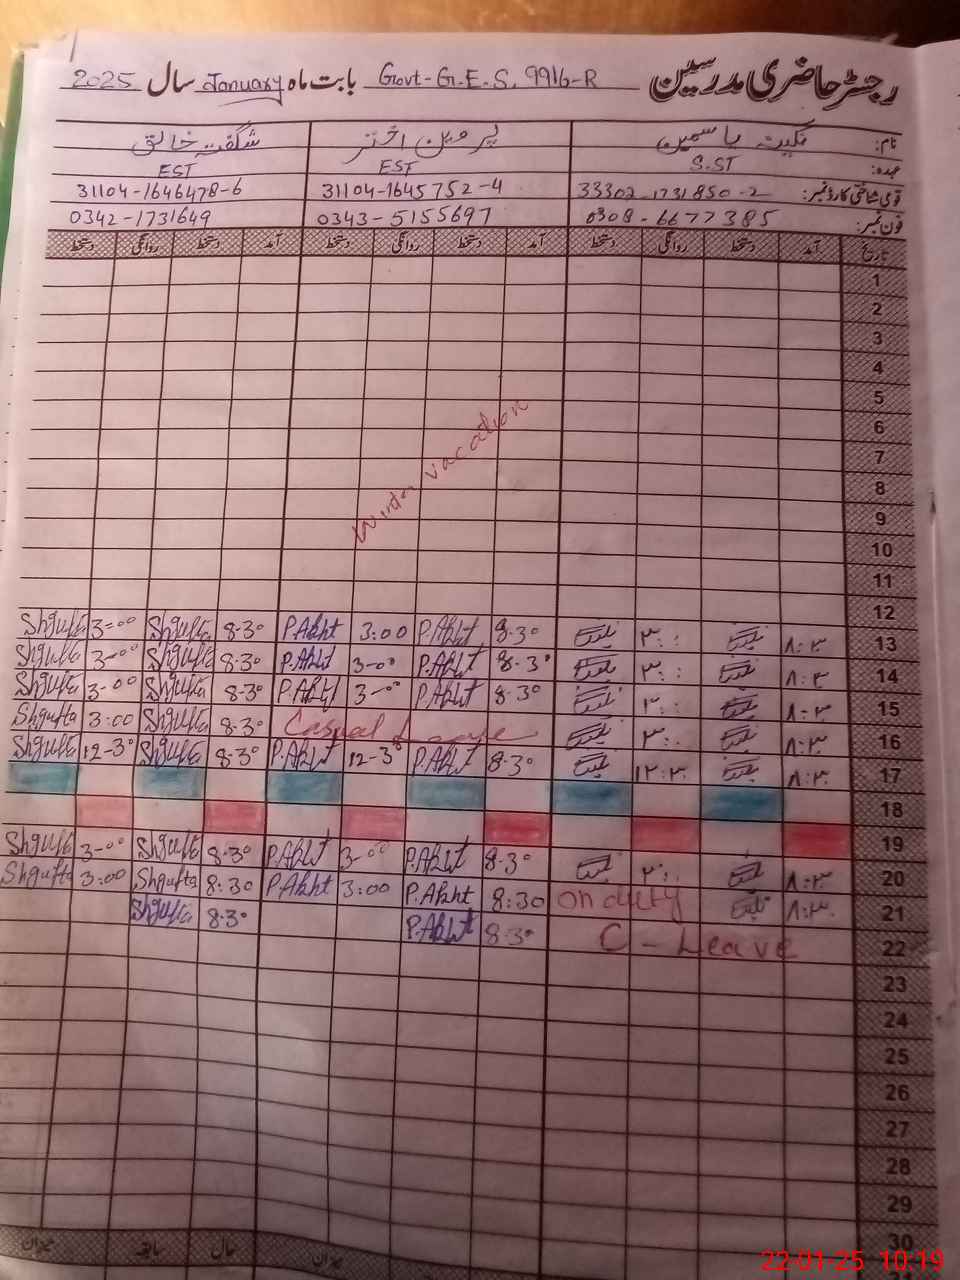 رجسٹر حاضری مدرسین Govt-G.E.S. 99/6-R بابت ماہ January سال 2025
نام: نگینہ یاسمین پروین اختر شگفتہ خالق
عہدہ: S.ST EST EST
قومی شناختی کارڈ نمبر: 33302-1731850-2 31104-1645752-4 31104-1646478-6
فون نمبر: 0308-6677385 0343-5155697 0342-1731649
تاریخ آمد دستخط روانگی دستخط آمد دستخط روانگی دستخط آمد دستخط روانگی دستخط
1
2
3
4
5
6
7
8
9
10
11
Winter vacation
12
13 ۸:۳۰ ۳:۰۰ 8.30 P.Akht 3:00 P.Akht 8.30 Shgufta 3-00 Shgufta
14 ۸:۳۰ ۳:۰۰ 8.30 P.Akht 3-00 P.Akht 8.30 Shgufta 3-00 Shgufta
15 ۸:۳۰ ۳:۰۰ 8.30 P.Akht 3-00 P.Akht 8.30 Shgufta 3-00 Shgufta
16 ۸:۳۰ ۳:۰۰ Casual Leave 8.30 Shgufta 3:00 Shgufta
17 ۸:۳۰ ۱۲:۳۰ 8.30 P.Akht 12-30 P.Akht 8.30 Shgufta 12-30 Shgufta
18
19
20 ۸:۳۰ ۳:۰۰ 8.30 P.Akht 3-00 P.Akht 8.30 Shgufta 3-00 Shgufta
21 ۸:۳۰ on duty 8:30 P.Akht 3:00 P.Akht 8:30 Shgufta 3:00 Shgufta
22 C - Leave 8.30 P.Akht 8.30 Shgufta
23
24
25
26
27
28
29
30
میزان حال سابقہ میزان
22-01-25 10:19